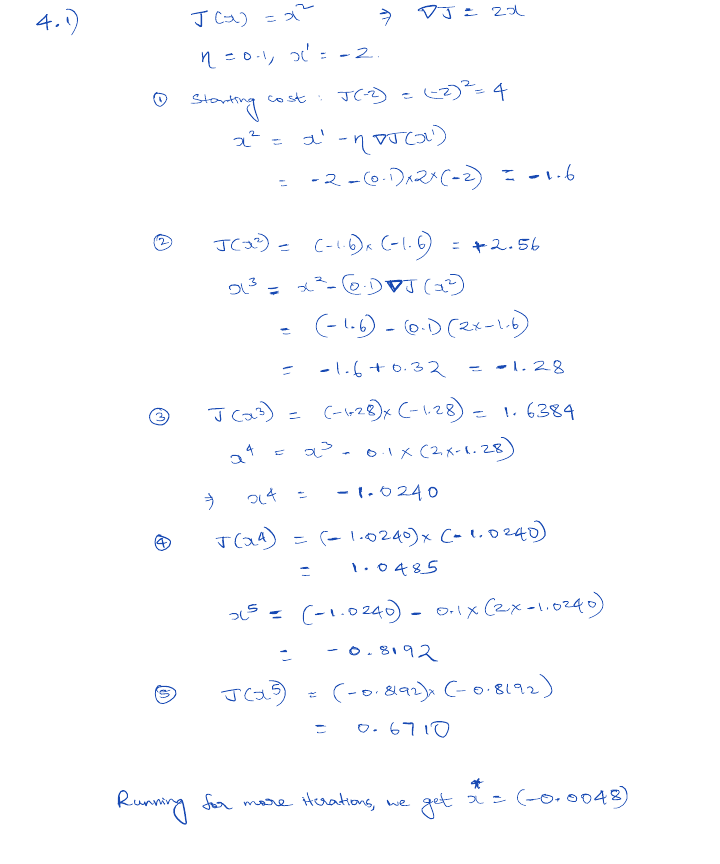 4.1) J(x) = x² ⇒ ∇J = 2x
η = 0.1, x¹ = -2.
① Starting cost : J(-2) = (-2)² = 4
x² = x¹ - η ∇J(x¹)
= -2 - (0.1)×2×(-2) = -1.6
② J(x²) = (-1.6)×(-1.6) = +2.56
x³ = x² - (0.1) ∇J(x²)
= (-1.6) - (0.1) (2×-1.6)
= -1.6 + 0.32 = -1.28
③ J(x³) = (-1.28)×(-1.28) = 1.6384
x⁴ = x³ - 0.1 × (2×-1.28)
⇒ x⁴ = -1.0240
④ J(x⁴) = (-1.0240)×(-1.0240)
= 1.0485
x⁵ = (-1.0240) - 0.1×(2×-1.0240)
= -0.8192
⑤ J(x⁵) = (-0.8192)×(-0.8192)
= 0.6710
Running for more iterations, we get x* = (-0.0048)